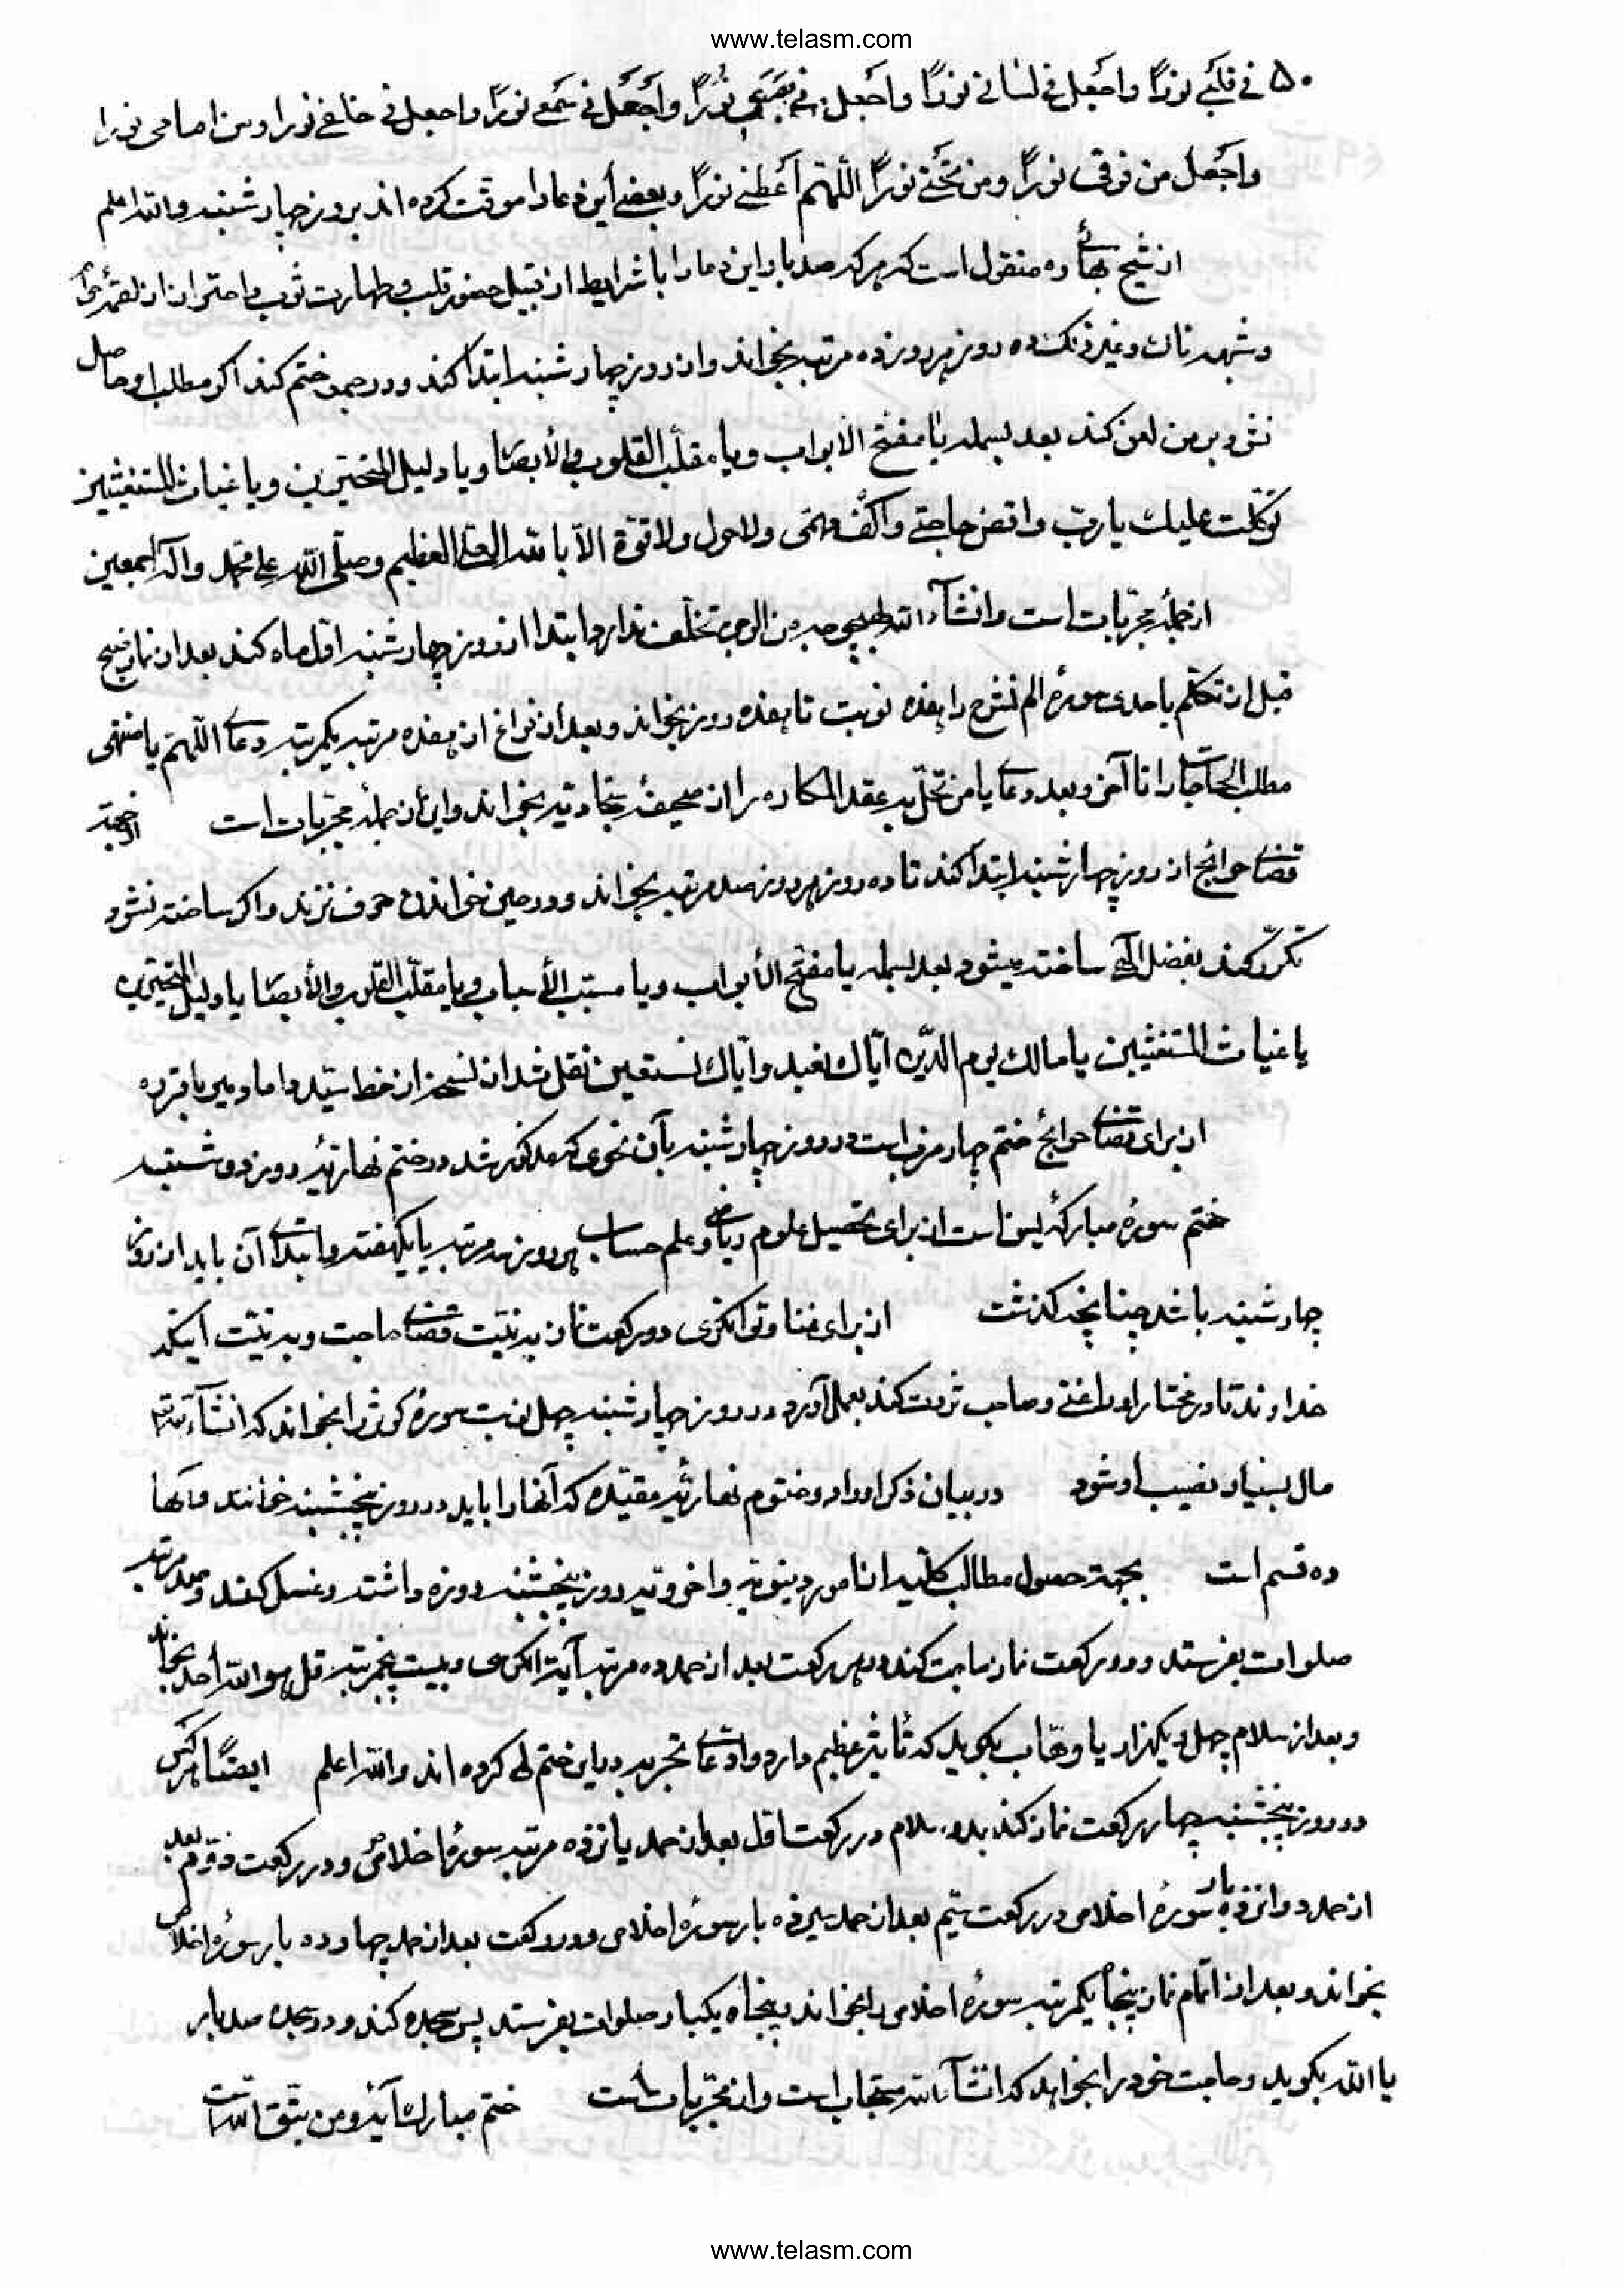 www.telasm.com
۵۰ في قلبي نورًا واجعل في لساني نورًا واجعل في بصري نورًا واجعل في سمعي نورًا واجعل في خلفي نورا ومن امامی نورا
واجعل من فوقی نورًا ومن تحتی نورًا اللّهمّ أعطنی نورًا وبعضی این دعا را موقت کرده اند بروز چهارشنبه والله اعلم
از شیخ بهائی ره منقول است که هر که صد بار این دعا را با شرایط از قبیل حضور قلب و طهارت ثوب و احتراز از لقمه
و شبهه ناک و غیر ذلک ده روز هر روز ده مرتبه بخواند و از روز چهارشنبه ابتدا کند و در جمعه ختم کند اگر مطلب او حاصل
نشود بر من لعن کند بعد بسمله یا مفتح الابواب ویا مقلّب القلوب والأبصار ویا دلیل المتحیرین ویا غیاث المستغیثین
توکّلت علیک یا ربّ واقض حاجتی واکف مهمّی ولا حول ولا قوّة الّا بالله العلی العظیم وصلّی الله علی محمّد وآله اجمعین
از جمله مجرّبات است وانشآء الله بهیچ وجه من الوجوه تخلّف ندارد ابتدا از روز چهارشنبه اوّل ماه کند بعد از نماز صبح
قبل از تکلّم باحدی سورهٔ الم نشرح را هفده نوبت تا هفده روز بخواند و بعد از فراغ از هفده مرتبه یکمرتبه دعای اللّهمّ یا منتهی
مطلب الحاجات را تا آخر و بعد دعای یا من تحلّ به عقد المکاره را از صحیفهٔ سجّادیّه بخواند واین از جملهٔ مجرّبات است از جهة
قضای حوائج از روز چهارشنبه ابتدا کند تا ده روز هر روز صد مرتبه بخواند و در حین خواندن حرف نزند واگر ساخته نشود
تکرّر کند بفضل الهی ساخته میشود بعد بسمله یا مفتّح الأبواب ویا مسبّب الأسباب ویا مقلّب القلوب والأبصار یا دلیل المتحیّرین
یا غیاث المستغیثین یا مالک یوم الدّین ایّاک نعبد وایّاک نستعین نقل شد از نسخه از خط سیّد داماد میر باقر ره
از برای قضای حوائج ختم چهار مرغ است در روز چهارشنبه بآن نحوی که مذکور شد در ختم نهاریّه روز دوشنبه
ختم سورهٔ مبارکهٔ یس است از برای تحصیل علوم ریاضی و علم حساب هر روز سه مرتبه یا یکهفته وابتدای آن باید از روز
چهارشنبه باشد چنانچه گذشت از برای غنا وتوانگری دو رکعت نماز به نیّت قضای حاجت وبه نیّت اینکه
خداوند قادر مختار او را غنی و صاحب ثروت کند بعمل آورد در روز چهارشنبه چهل نوبت سورهٔ کوثر را بخواند که انشآءالله
مال بسیار نصیب او شود در بیان ذکر اوراد وختوم نهاریّهٔ مقیّده که آنها را باید در روز پنجشنبه خوانند وآنها
ده قسم است بجهة حصول مطالب کلّیه از امور دینویّه واخرویّه روز پنجشنبه روزه داشته وغسل کند وصد مرتبه
صلوات بفرستد ودو رکعت نماز حاجت کند در هر رکعت بعد از حمد ده مرتبه آیة الکرسی وبیست پنجمرتبه قل هو الله احد بخواند
وبعد از سلام چهل ویکهزار یا وهّاب بگوید که تأثیر عظیم دارد وادعای تجربه در این ختم کرده اند والله اعلم ایضًا هر کس
در روز پنجشنبه چهار رکعت نماز کند بدو سلام در رکعت اوّل بعد از حمد یازده مرتبه سورهٔ اخلاص ودر رکعت دوّم بعد
از حمد دوازده بار سورهٔ اخلاص در رکعت سیّم بعد از حمد سیزده بار سورهٔ اخلاص ودر رکعت بعد از حمد چهارده بار سورهٔ اخلاص
بخواند وبعد از اتمام نماز پنجاه یکمرتبه سورهٔ اخلاص را بخواند وپنجاه یکبار صلوات بفرستد پس سجده کند ودر سجده صد بار
یا الله بگوید وحاجت خود را بخواهد که انشآءالله مستجاب است واز مجرّبات است ختم مبارک آیهٔ ومن یتّق الله است
www.telasm.com